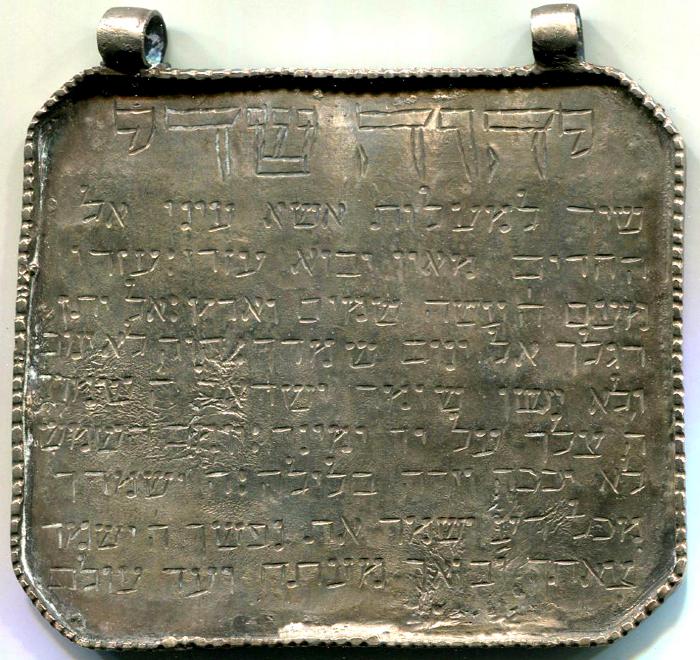 יהוה שדי
שיר למעלות אשא עיני אל
ההרים מאין יבוא עזרי: עזרי
מעם ה עשה שמים וארץ: אל יתן
רגלך אל ינום שמרך: הנה לא ינום
ולא ישן שומר ישראל: ה שמרך
ה צלך על יד ימינך: יומם השמש
לא יככה וירח בלילה: ה ישמרך
מכל רע ישמר את נפשך: ה ישמר
צאתך ובואך מעתה ועד עולם